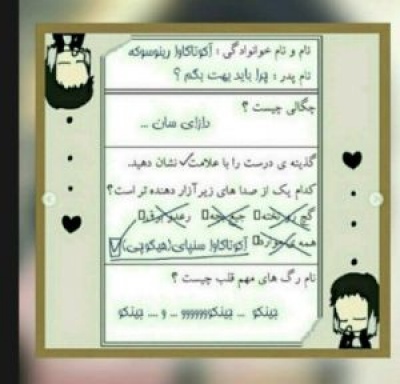 نام و نام خوانوادگی : آکوتاگاوا رینوسوکه
نام پدر : چرا باید بهت بگم ؟
چگالی چیست ؟
دازای سان ...
گذینه ی درست را با علامت✓ نشان دهید.
کدام یک از صدا های زیر آزار دهنده تر است؟
گچ رو تخته جیغ بچه رعد و برق
همه ی موارد آکوتاگاوا سنپای(هیگوچی)
نام رگ های مهم قلب چیست ؟
جینکو ... جینکوووووو ... و ... جینکو